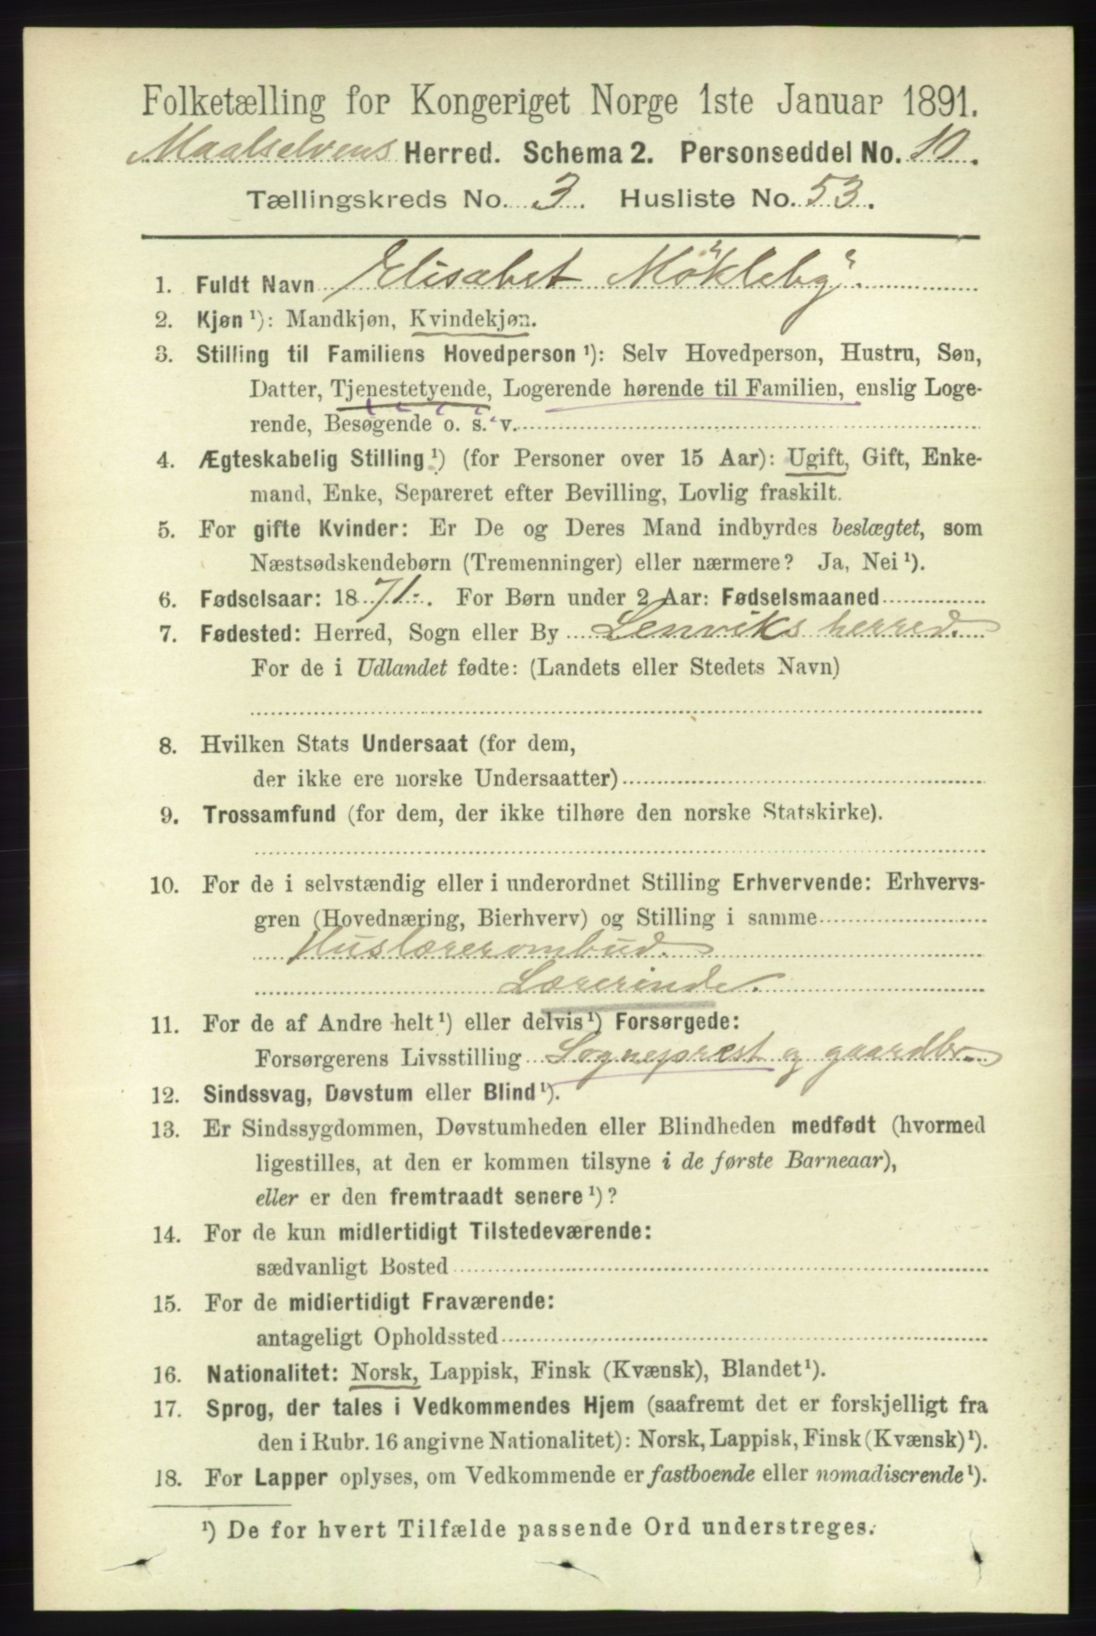 Folketælling for Kongeriget Norge 1ste Januar 1891.
Maalselvens Herred. Schema 2. Personseddel No. 10.
Tællingskreds No. 3. Husliste No. 53.
1. Fuldt Navn Elisabet Møkleby.
2. Kjøn ¹): Mandkjøn, Kvindekjøn.
3. Stilling til Familiens Hovedperson ¹): Selv Hovedperson, Hustru, Søn,
Datter, Tjenestetyende, Logerende hørende til Familien, enslig Loge-
rende, Besøgende o. s. v.
4. Ægteskabelig Stilling ¹) (for Personer over 15 Aar): Ugift, Gift, Enke-
mand, Enke, Separeret efter Bevilling, Lovlig fraskilt.
5. For gifte Kvinder: Er De og Deres Mand indbyrdes beslægtet, som
Næstsødskendebørn (Tremenninger) eller nærmere? Ja, Nei ¹).
6. Fødselsaar: 1871. For Børn under 2 Aar: Fødselsmaaned
7. Fødested: Herred, Sogn eller By Lenviks herred.
For de i Udlandet fødte: (Landets eller Stedets Navn)
8. Hvilken Stats Undersaat (for dem,
der ikke ere norske Undersaatter)
9. Trossamfund (for dem, der ikke tilhøre den norske Statskirke).
10. For de i selvstændig eller i underordnet Stilling Erhvervende: Erhvervs-
gren (Hovednæring, Bierhverv) og Stilling i samme
Huslærerombud.
Lærerinde.
11. For de af Andre helt ¹) eller delvis ¹) Forsørgede:
Forsørgerens Livsstilling Sogneprest og gaardbr.
12. Sindssvag, Døvstum eller Blind ¹).
13. Er Sindssygdommen, Døvstumheden eller Blindheden medfødt (hvormed
ligestilles, at den er kommen tilsyne i de første Barneaar),
eller er den fremtraadt senere ¹)?
14. For de kun midlertidigt Tilstedeværende:
sædvanligt Bosted
15. For de midlertidigt Fraværende:
antageligt Opholdssted
16. Nationalitet: Norsk, Lappisk, Finsk (Kvænsk), Blandet ¹).
17. Sprog, der tales i Vedkommendes Hjem (saafremt det er forskjelligt fra
den i Rubr. 16 angivne Nationalitet): Norsk, Lappisk, Finsk (Kvænsk) ¹).
18. For Lapper oplyses, om Vedkommende er fastboende eller nomadiserende ¹).
¹) De for hvert Tilfælde passende Ord understreges.